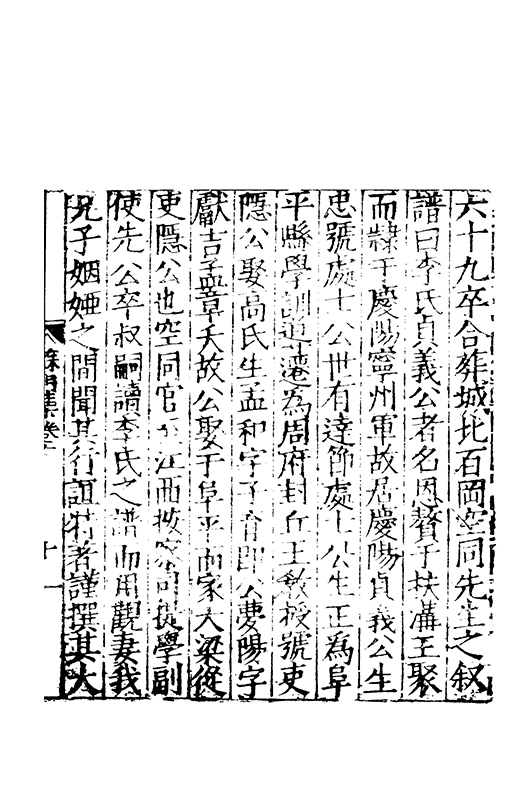 六十九卒合葬城北石岡空同先生之叙
譜曰李氏貞義公者名恩贅于扶溝王聚
而隸于慶陽寧州軍故居慶陽貞義公生
忠號處士公世有達節處士公生正為阜
平縣學訓導遷為周府封丘王教授號吏
隱公娶高氏生孟和字子育即公夢陽字
獻吉孟章夭故公娶于阜平而家大梁從
吏隱公也空同官至江西按察司提學副
使先公卒叔嗣讀李氏之譜而用觀妻我
兄子姻婭之間聞其行誼特著謹撰其大
十一